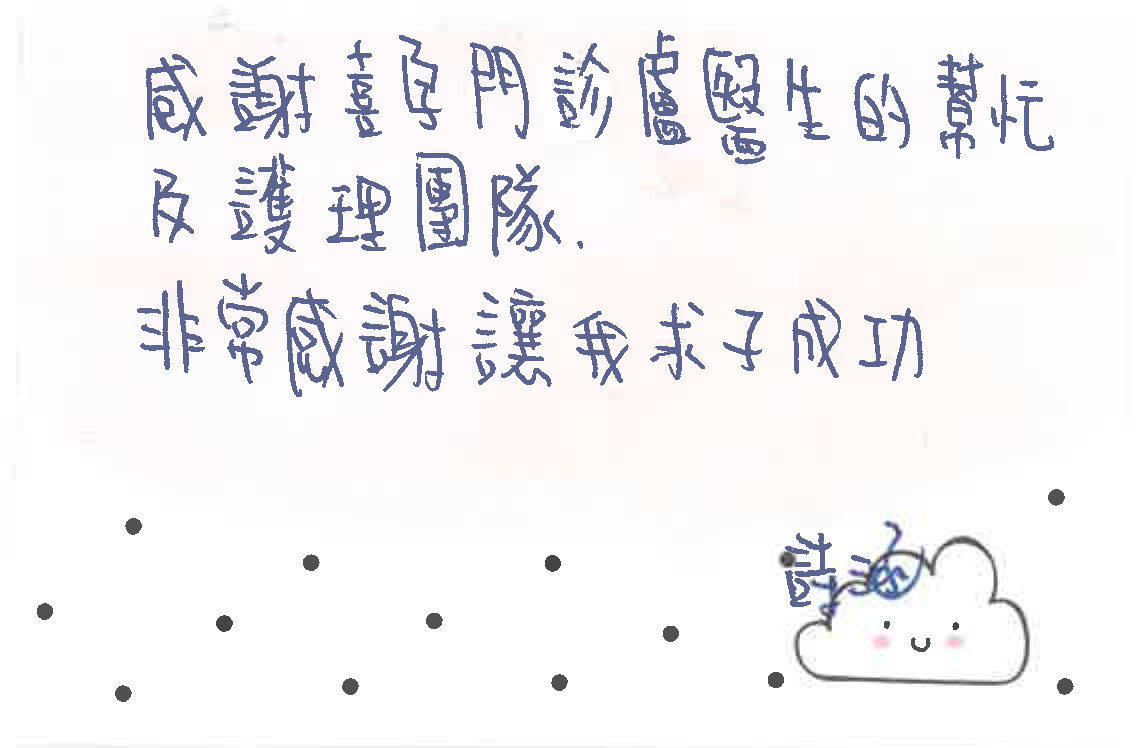 感謝喜孕門診盧醫生的幫忙
及護理團隊.
非常感謝讓我求子成功
詩涵